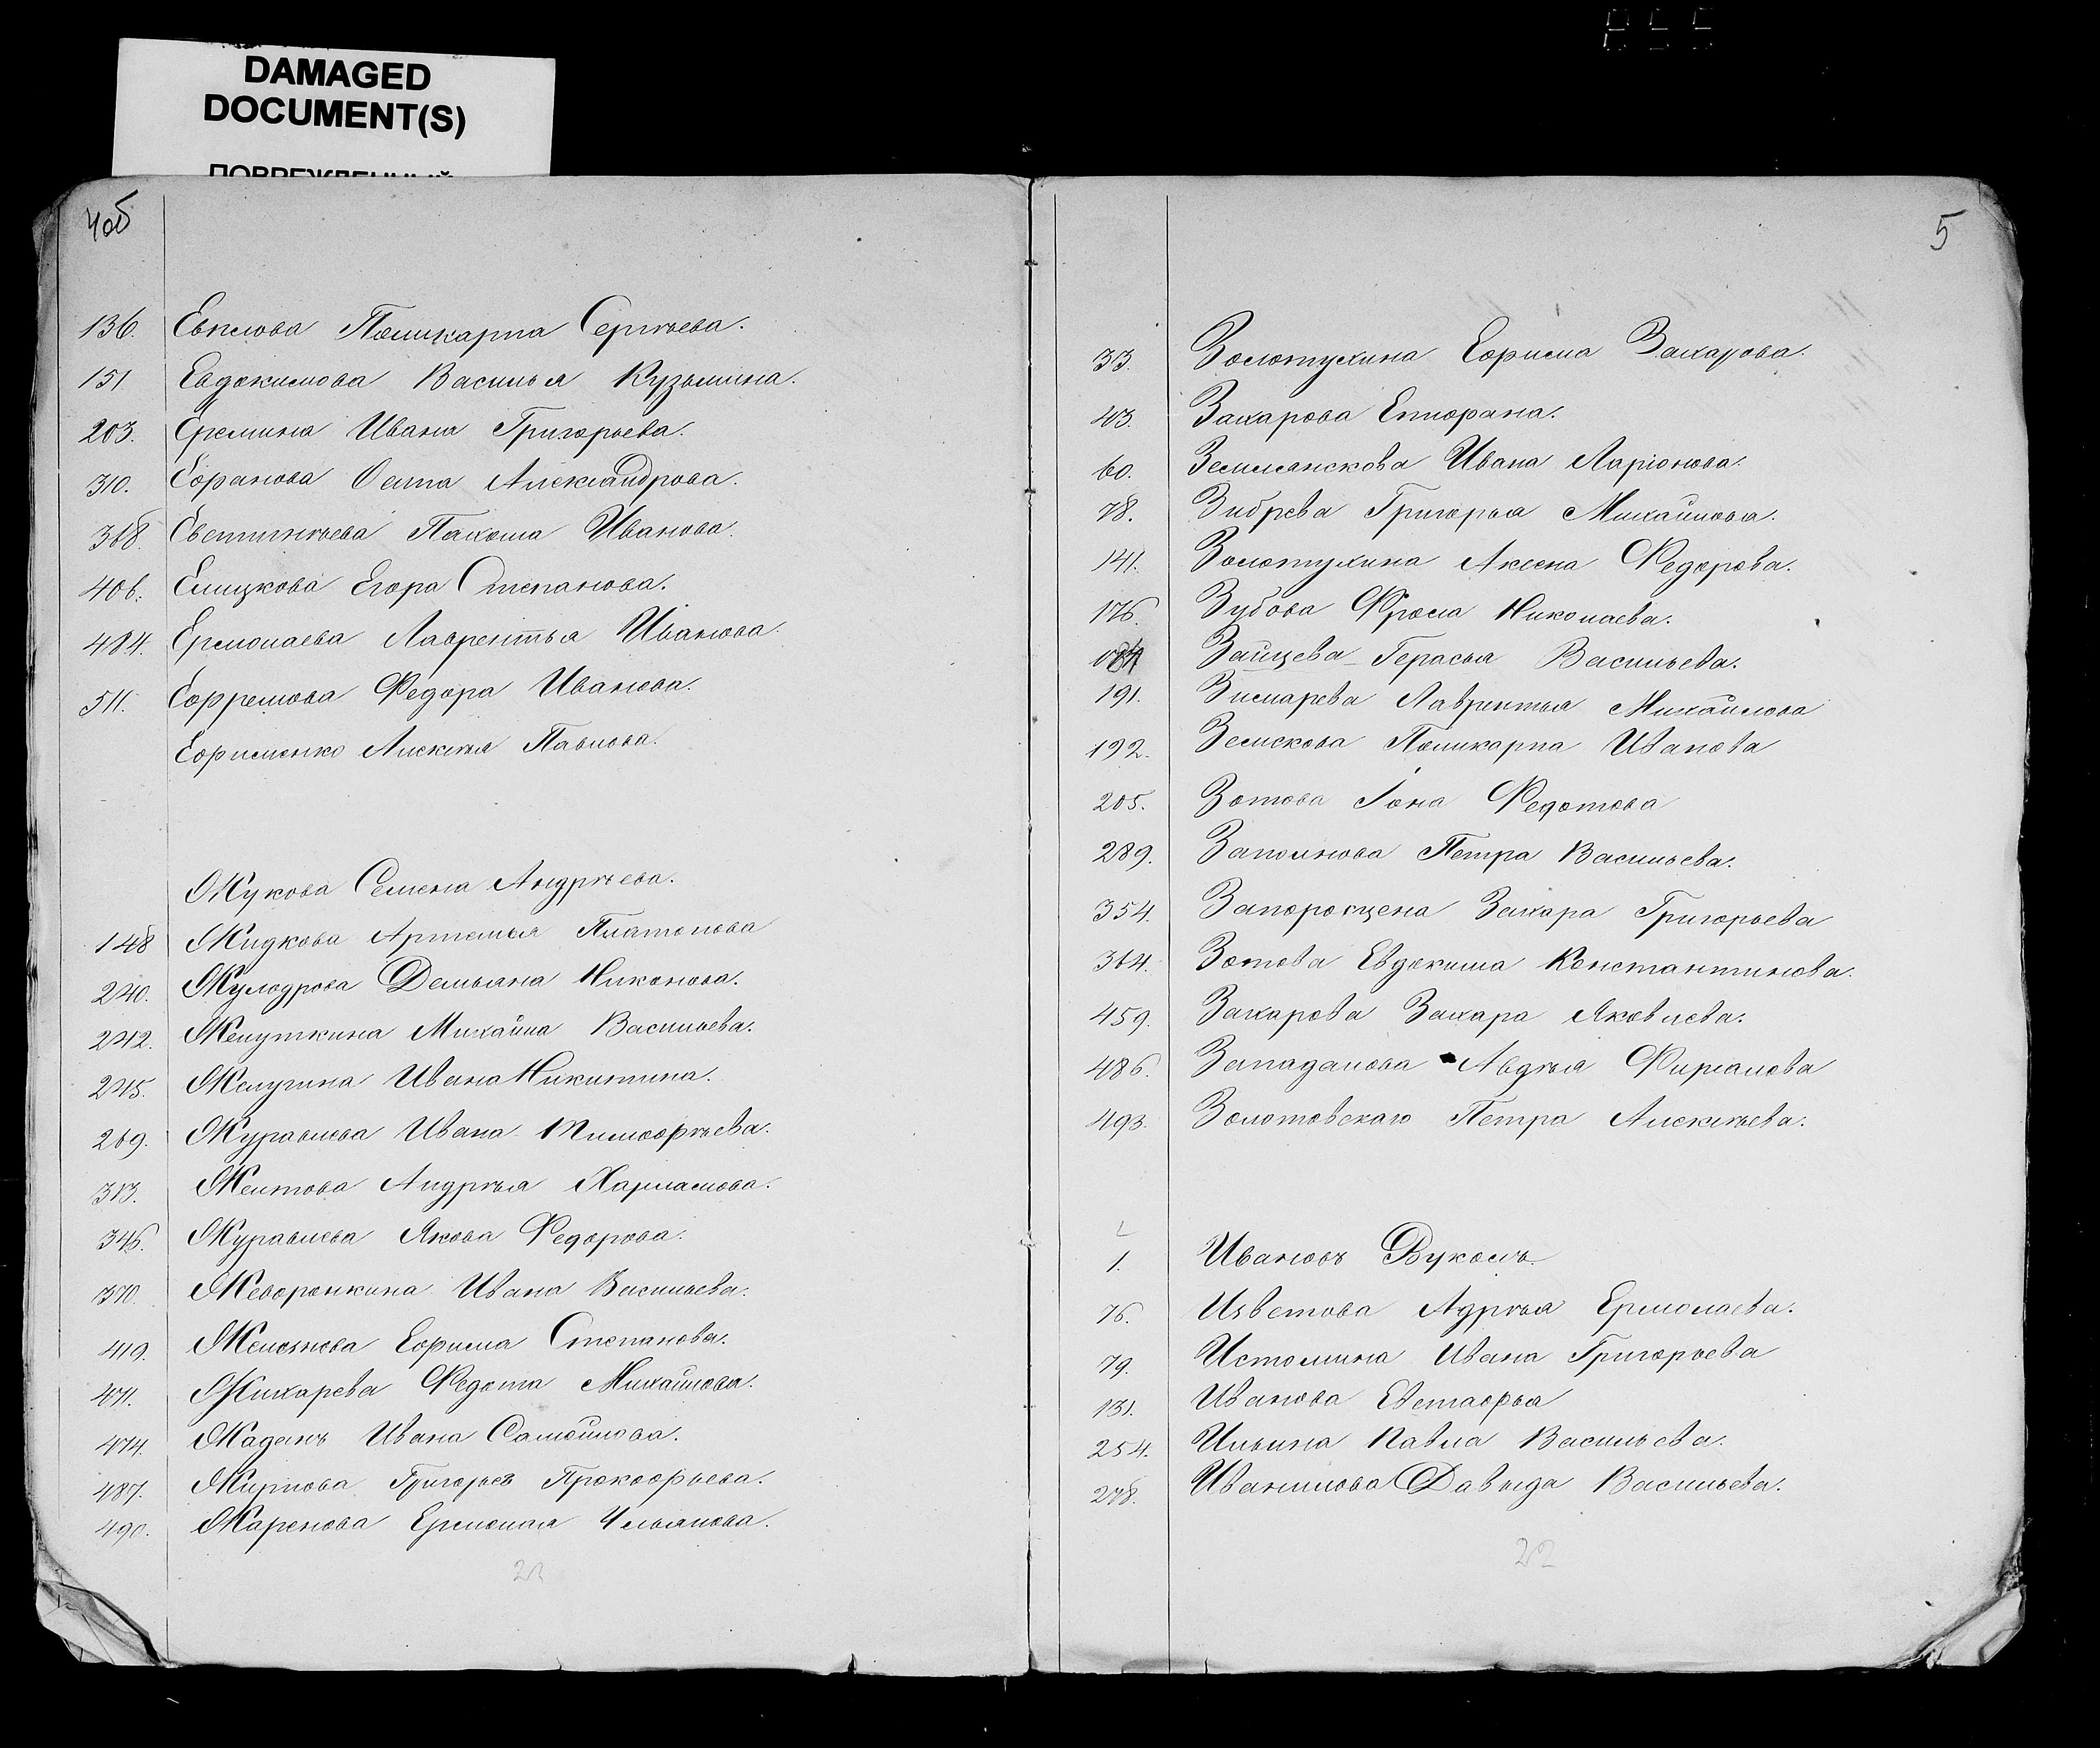 DAMAGED
DOCUMENT(S)
4об
136. Евплова Поликарпа Сергѣева.
151 Евдокимова Василья Кузьмина.
203. Еремина Ивана Григорьева.
310. Ефанова Александрова.
368. Иванова.
406. Елицкова Егора Степанова.
484. Ермолаева Лаврентья Иванова.
511. Ефремова Федора Иванова.
Ефименко Алексѣя Павлова.
Жукова Семена Андрѣева.
148 Жидкова Артемья Платонова
240. Демьяна Никонова.
242. Желуткина Михайла Васильева.
245. Желугина Ивана Никитина.
269. Журавлева Ивана Тимофѣева.
313. Желтова Андрѣя Харламова.
346. Журавлева Якова Федорова.
370. Жеворонкина Ивана Васильева.
419. Ефима Степанова.
471. Жихарева Федота Михайлова.
474 Жаданъ Ивана Самойлова.
487. Жирнова Григорьев Прокофьева.
490. Жаренова Ермолая Ульянова.
5
33. Золотухина Ефима Захарова.
43. Захарова Епифана.
60. Землянскова Ивана Ларіонова.
78. Зибрева Григорья Михайлова.
141. Золотухина Аксена Федорова.
176. Зубова Фрола Николаева.
184 Зайцева Герасья Васильева.
191. Зимарева Лаврентья Михайлова
192. Земскова Поликарпа Иванова
205. Зотова Іона Федотова
289. Заполнова Петра Васильева.
354. Запоросцена Захара Григорьева
364. Зотова Евдокима Константинова.
459. Захарова Захара Яковлева.
486. Западалова Авдѣя Фирсанова
493. Золотовскаго Петра Алексѣева.
1. Ивановъ Вуколъ
76. Изветова Адрѣя Ермолаева.
79. Истомина Ивана Григорьева
131. Иванова Евстафья
254. Ильина Павла Васильева.
278. Иванилова Давыда Васильева.
22